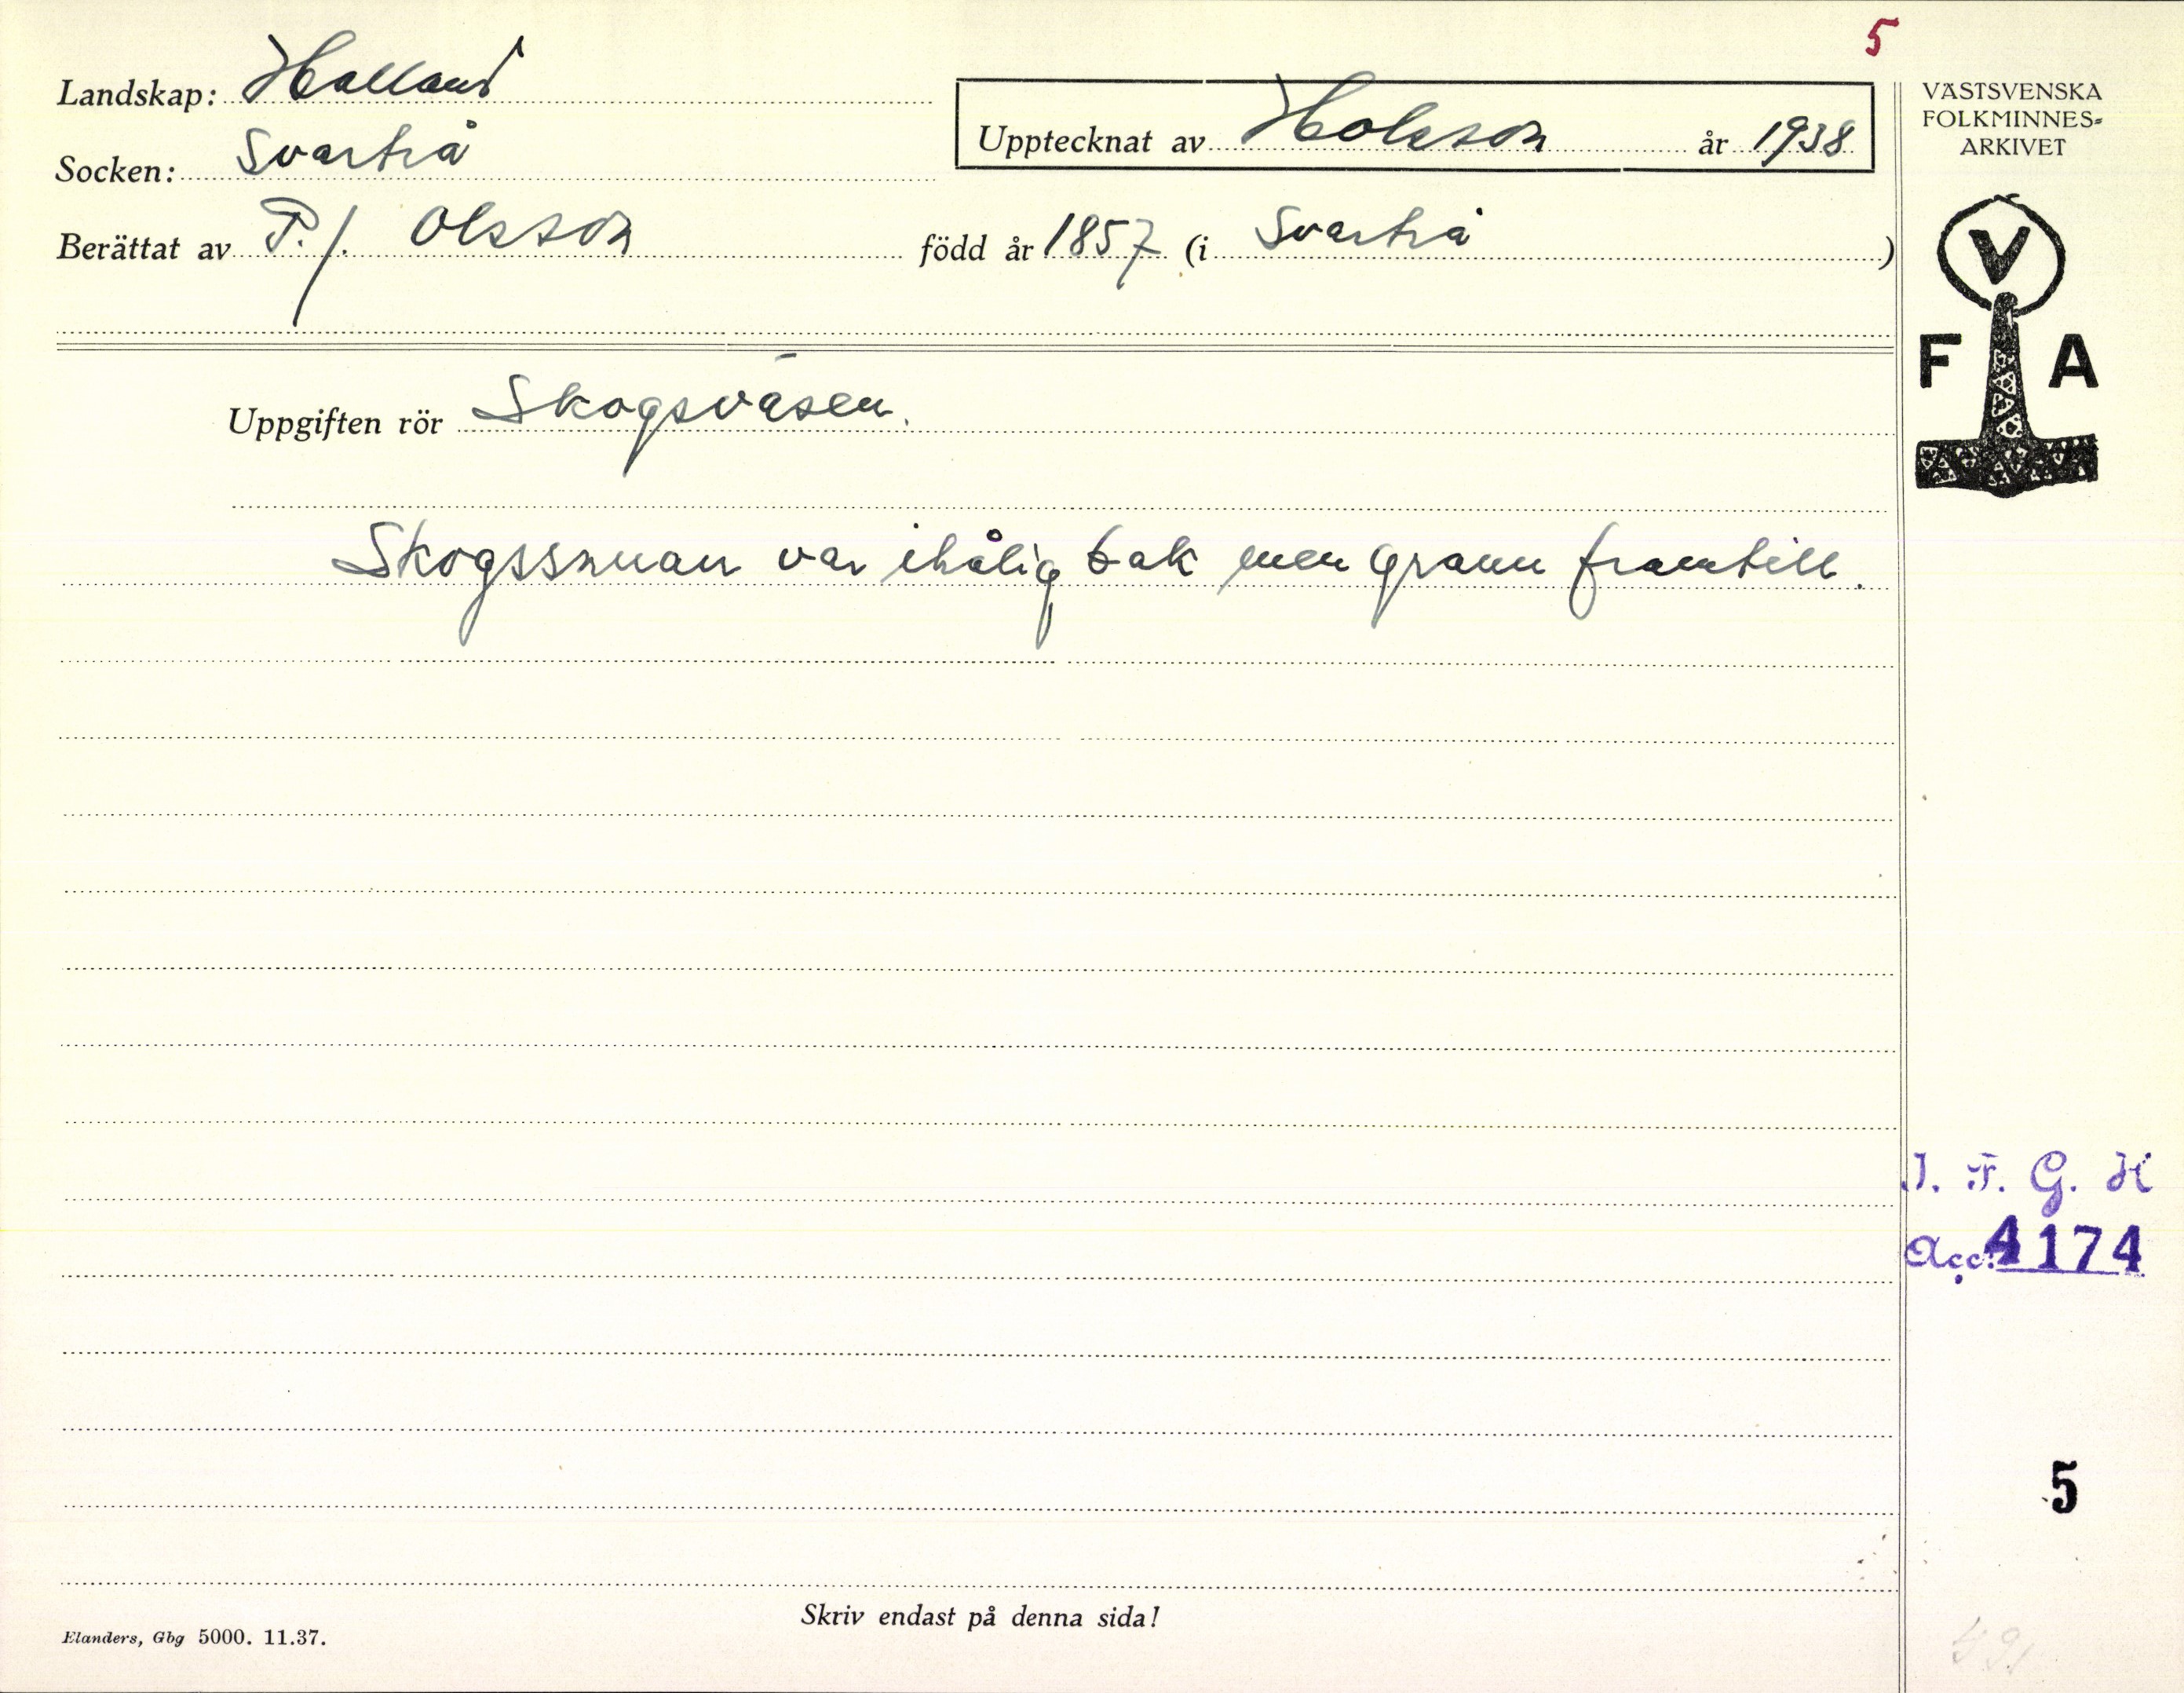 5
Landskap: Halland
Socken: Svartrå
Upptecknat av Holsson år 1938
Berättat av P. J. Olsson född år 1857 (i Svartrå)
VÄSTSVENSKA
FOLKMINNES-
ARKIVET
V
F A
Uppgiften rör Skogsväsen.
Skogssnuan var ihålig bak men grann framtill.
I. F. G. H
Acc. 4174
5
Skriv endast på denna sida!
Elanders, Gbg 5000. 11.37.